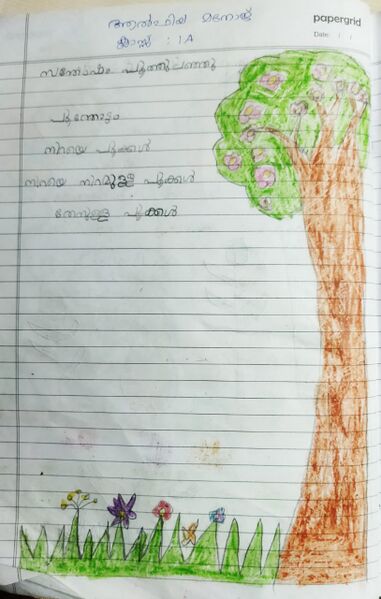 ആൽഫിയ മനോജ്
ക്ലാസ്സ് : 1A
papergrid
Date: / /
സന്തോഷം പൂത്തുലഞ്ഞു
പൂന്തോട്ടം
നിറയെ പൂക്കൾ
നിറയെ നിറമുള്ള പൂക്കൾ
തേനുള്ള പൂക്കൾ